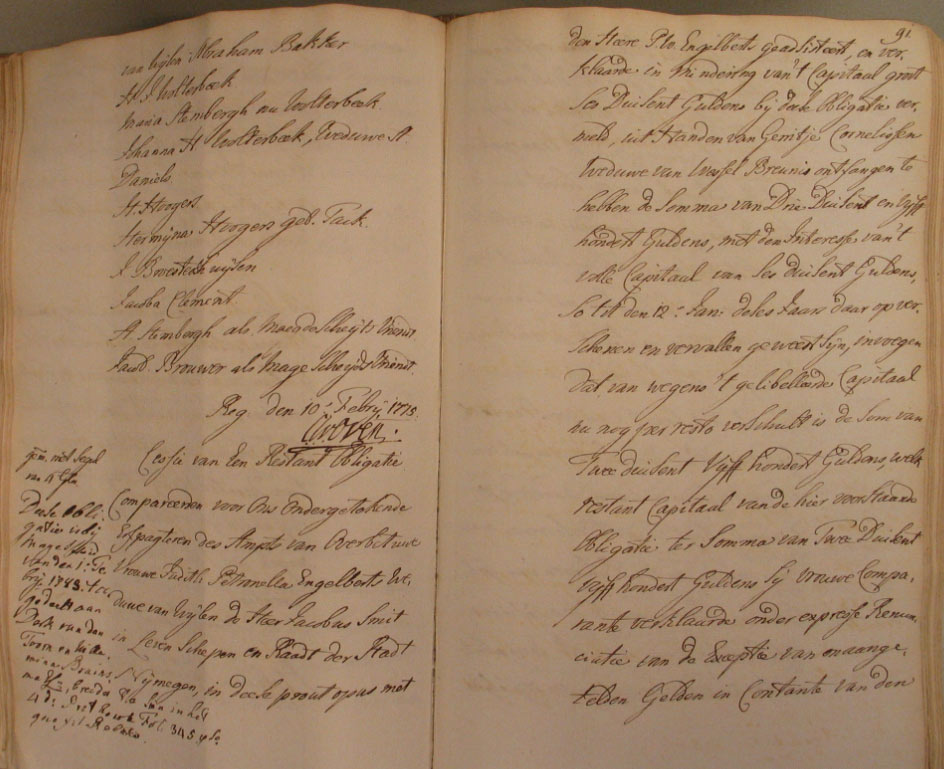 van wijlen Abraham Bakker
H. J. Wolterbeek
Maria Stembergh nu Wolterbeek
Johanna H Wolterbeek, Weduwe A
Daniels
H. Hoogers
Hermijna Hoogers geb. Tack.
Jacoba Clement.
A. Stembergh als maegdescheijts Vriend
Jacob. Brouwer als Magescheijds Vriend.
Reg. den 10: Febrij 1775
Cessie van Een Restant Obligatie
gem. met Segel
Compareerden voor Ons Ondergetekende
Erfpagteren des Ampts van Overbetuwe
Vrouwe Judith Petronella Engelberts We,
duwe van Wijlen de Heer Jacobus Smit
in Leven Schepen en Raadt der Stadt
Nijmegen, in deese prout opus met
Dese Obli,
gatie is bij
Magescheid
van den 1: Fe
brij 1783. toe
gedeelt aan
Derk van den
91
den Heere Engelberts geadsisteert, en ver,
klaarde in mindering van't Capitaal groot
Ses Duisent Guldens bij deese Obligatie ver
meld, uit Handen van Gerritje Cornelissen
Weduwe van Wessel Breunis ontfangen te
hebben de Somma van Drie Duisent en Vijff
hondert Guldens, met den Interesse van't
volle Capitaal van Ses duisent Guldens,
So tot den 12: Jan: deses Jaars daar op ver,
schenen en vervallen geweest sijn, invoegen
dat van wegens 't gelibelleerde Capitaal
nu nog per resto verschult is de Som van
Twee duisent Vijff hondert Guldens, welk
restant Capitaal van de hier voorstaande
Obligatie ter Somma van Twee Duisent
Vijff hondert Guldens Sij vrouwe Compa,
rante verklaarde onder expresse Renun,
ciatie van de Exceptie van onaange,
telden Gelden in Contante van den